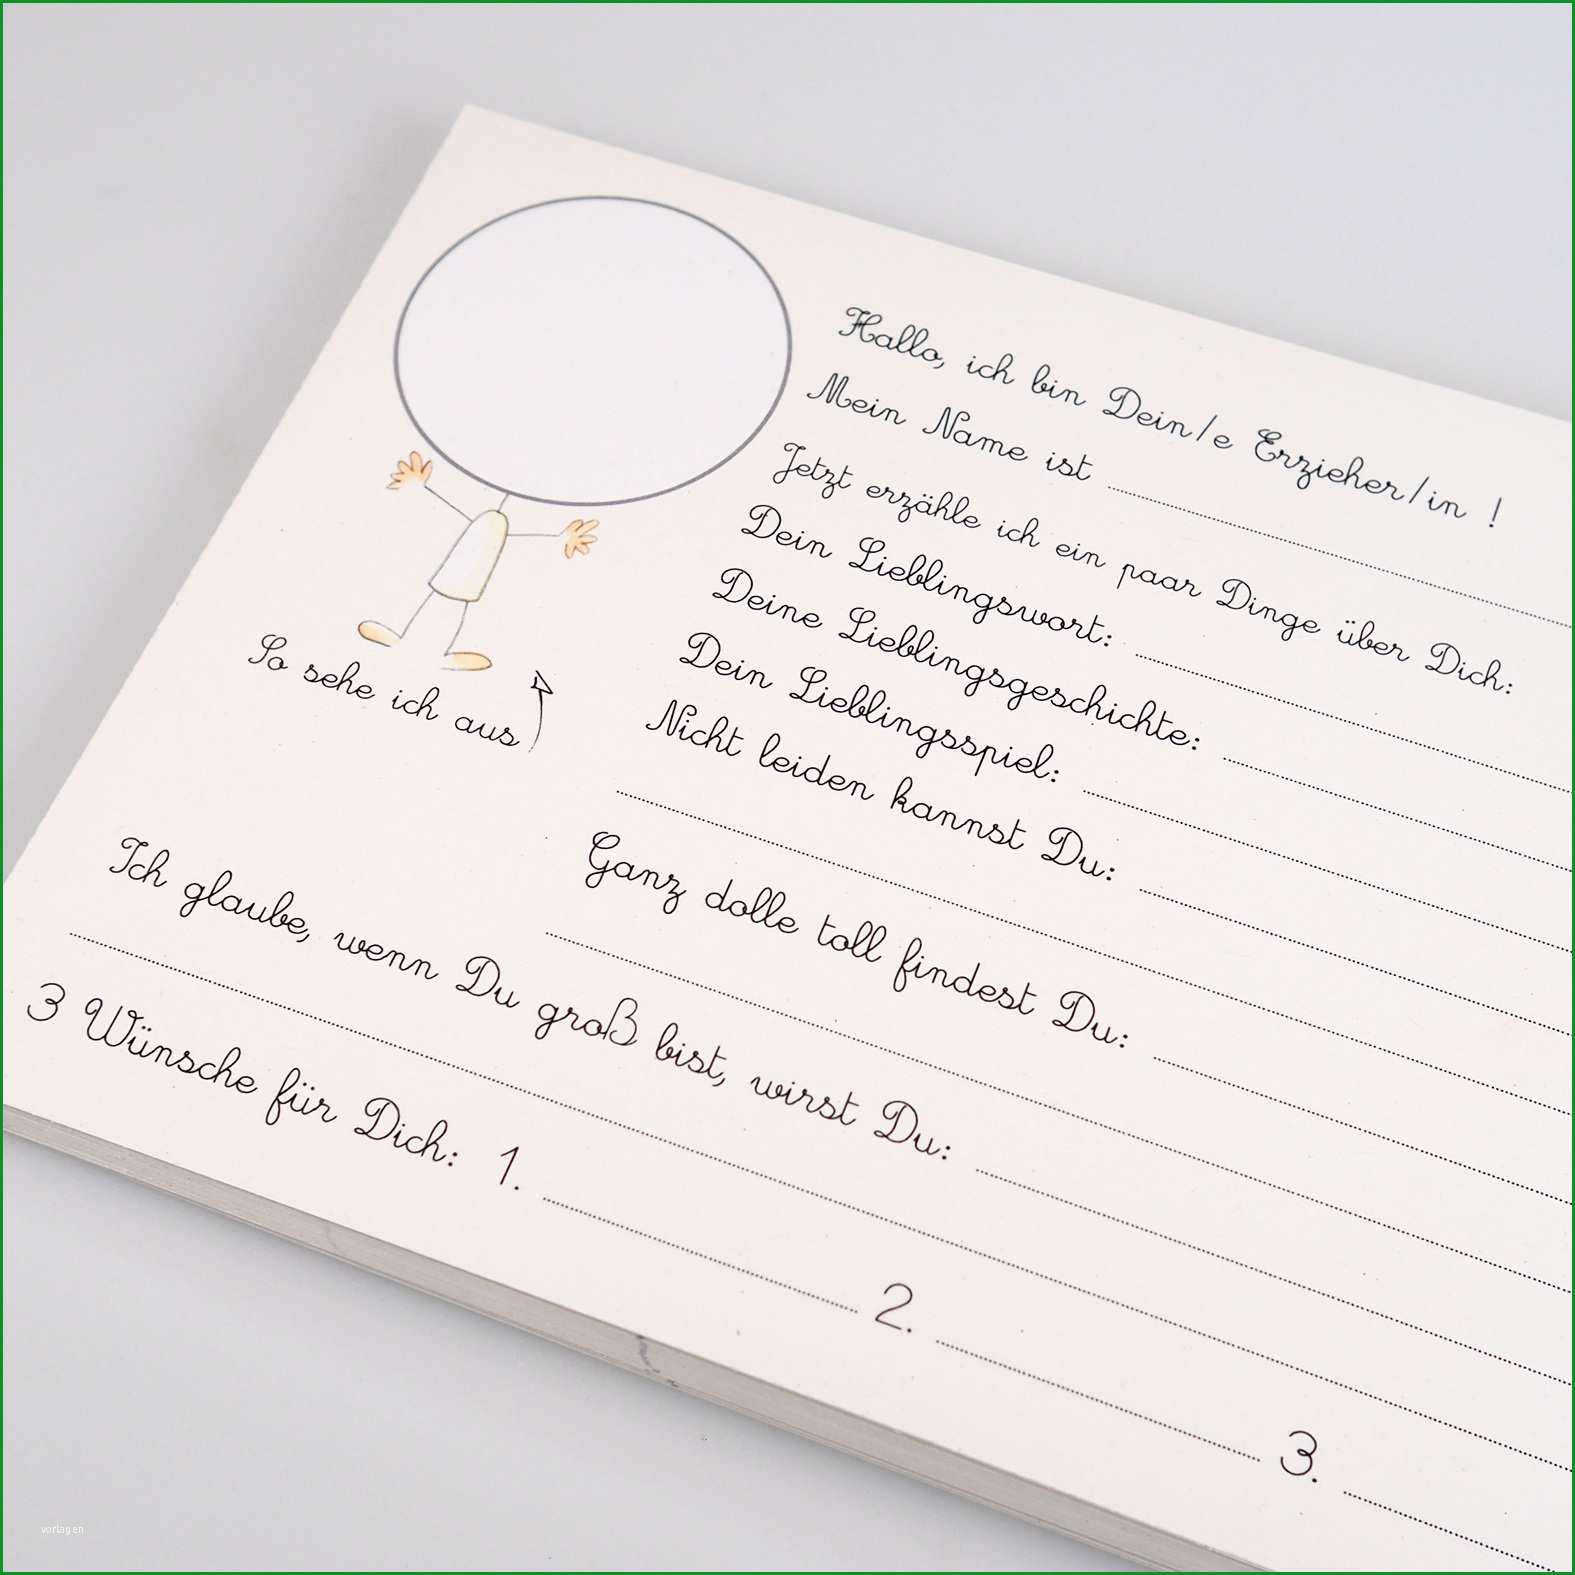 Hallo, ich bin Dein/e Erzieher/in !
Mein Name ist
Jetzt erzähle ich ein paar Dinge über Dich:
Dein Lieblingswort:
Deine Lieblingsgeschichte:
Dein Lieblingsspiel:
Nicht leiden kannst Du:
So sehe ich aus
Ganz dolle toll findest Du:
Ich glaube, wenn Du groß bist, wirst Du:
3 Wünsche für Dich: 1. 2. 3.
vorlagen